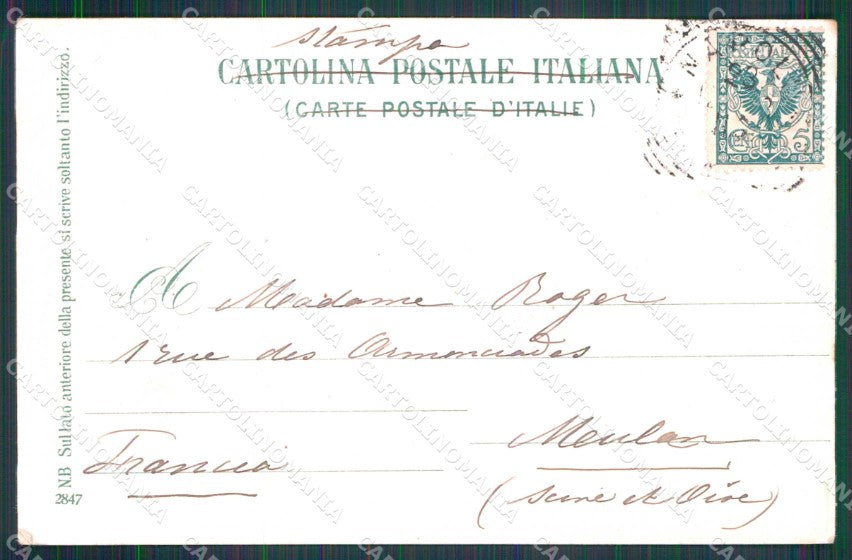 Stampe
CARTOLINA POSTALE ITALIANA
(CARTE POSTALE D'ITALIE)
A Madame Roger
1 rue des Annonciades
Meulan
Francia
(Seine et Oise)
N.B Sul lato anteriore della presente si scrive soltanto l'indirizzo.
2847
5
CARTOLINOMANIA